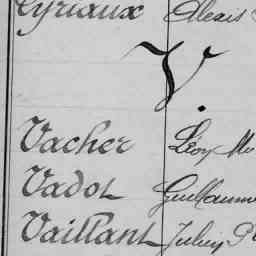 Cyriaux Alexis
V.
Vacher Léon M
Vadot Guillaume
Vaillant Julien P